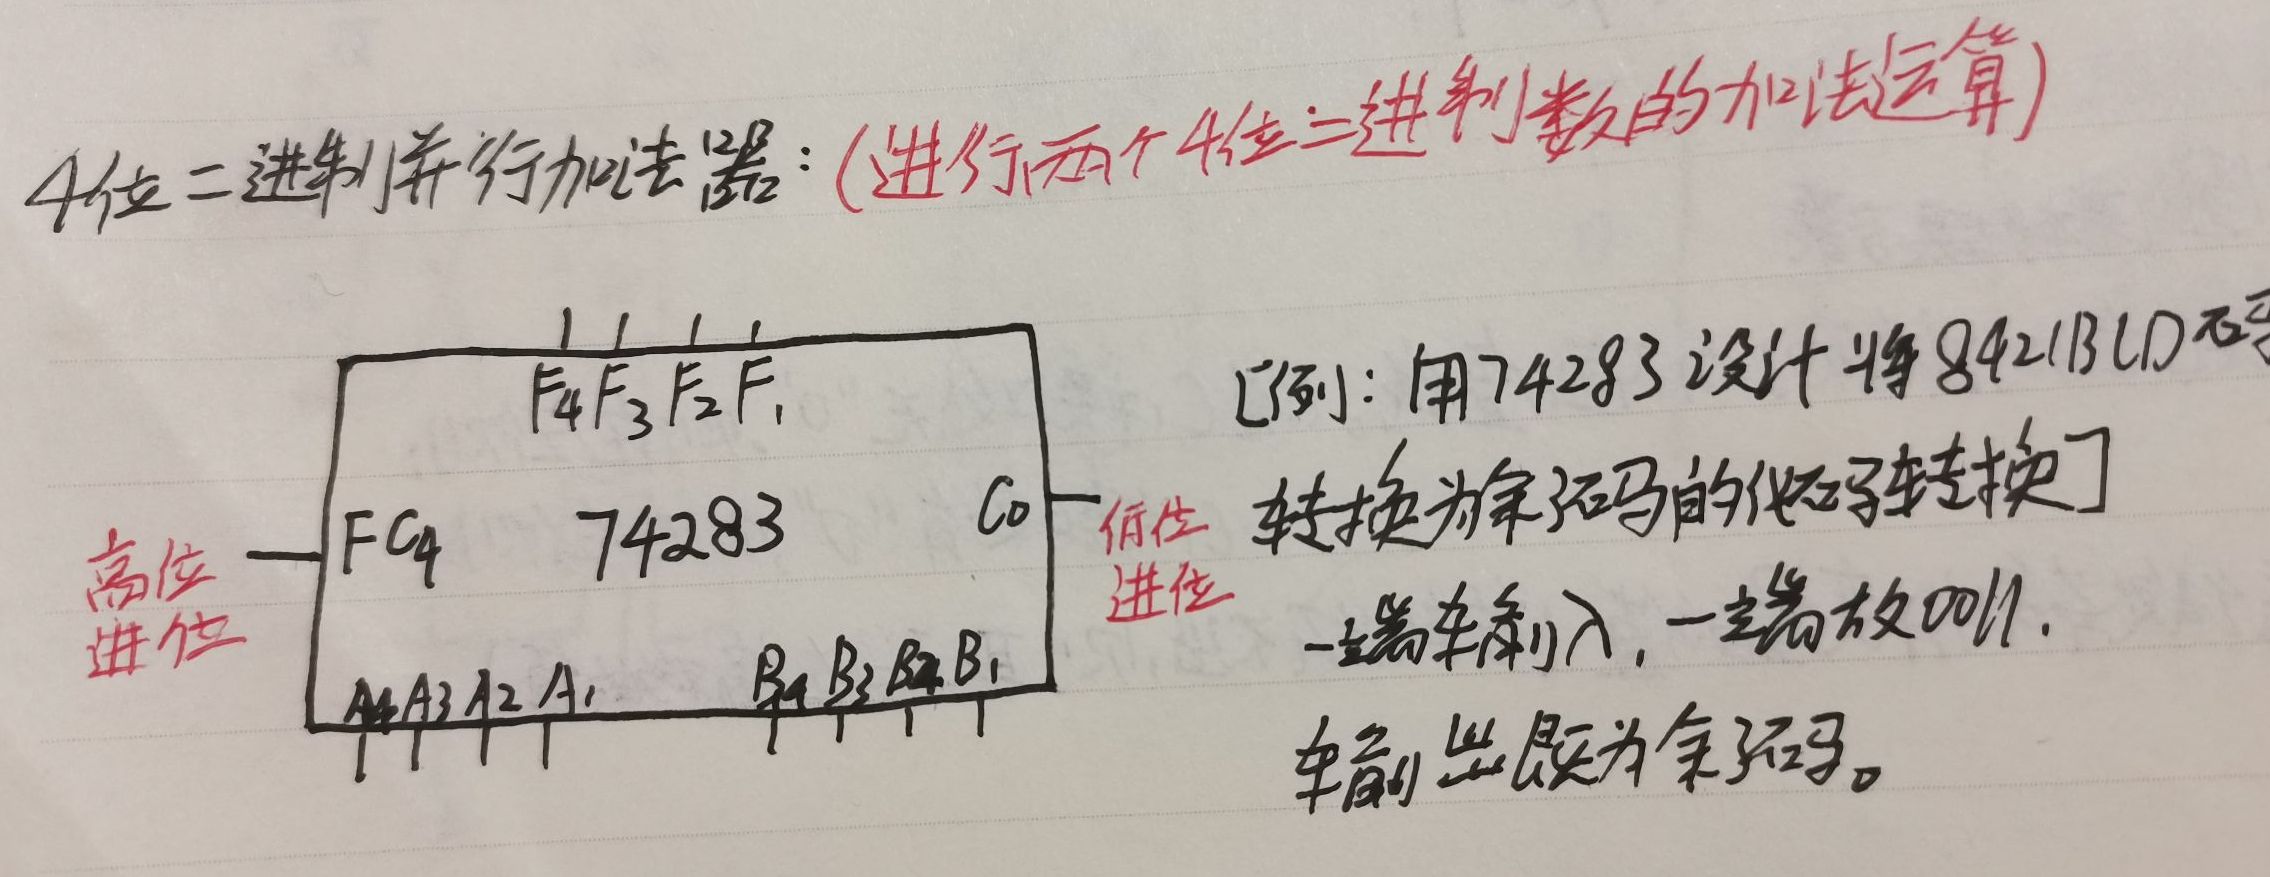 4位二进制并行加法器：(进行两个4位二进制数的加法运算)
F4 F3 F2 F1
FC4 74283 C0
高位
进位
低位
进位
A4 A3 A2 A1 B4 B3 B2 B1
[例：用74283设计将8421BCD码
转换为余3码的代码转换]
一端输入，一端放0011.
输出既为余3码。